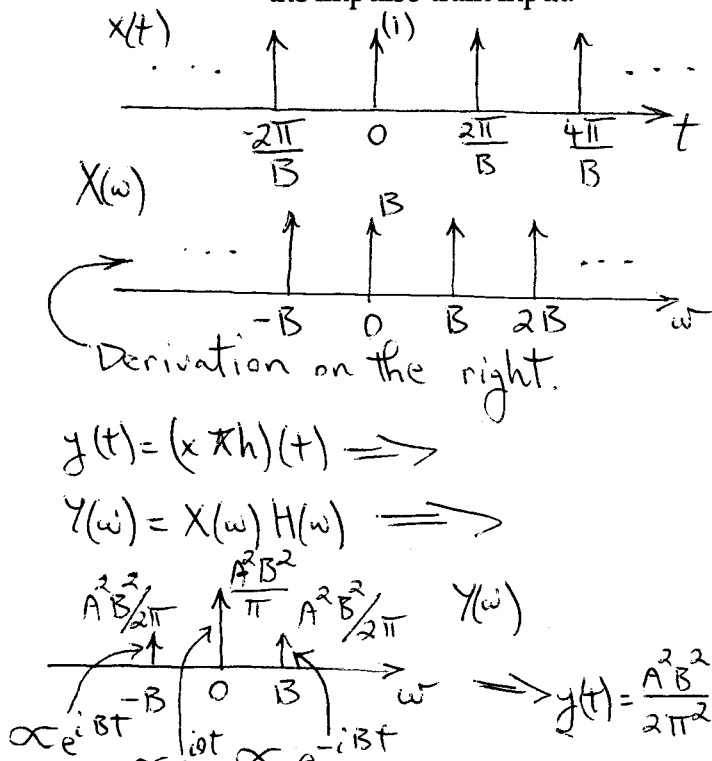 the impulse train input.
x(t) (1)
... ...
-2π/B 0 2π/B 4π/B t
X(ω) B
... ...
-B 0 B 2B ω
Derivation on the right.
y(t) = (x * h)(t) ⟹
Y(ω) = X(ω) H(ω) ⟹
A²B²/2π A²B²/π A²B²/2π Y(ω)
-B 0 B ω ⟹ y(t) = A²B²/2π²
∝ e^{iBt} ∝ e^{i0t} ∝ e^{-iBt}